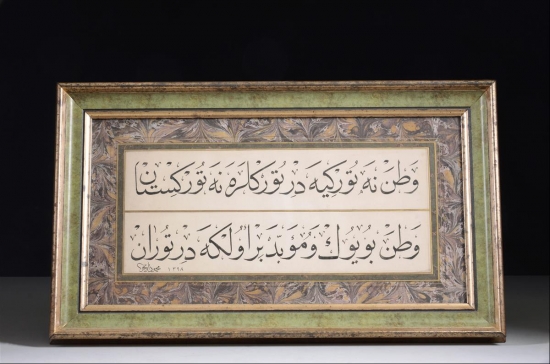 وطن نه توركيه در توركلره نه توركستان
وطن بويوك و مؤبد بر اولكه در توران